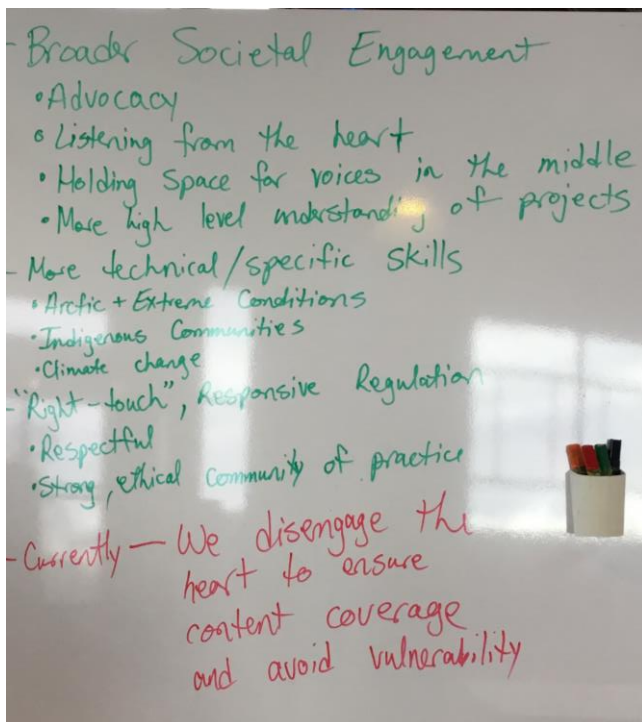 - Broader Societal Engagement
• Advocacy
• Listening from the heart
• Holding Space for voices in the middle
• More high level understanding of projects
- More technical/specific skills
• Arctic + Extreme Conditions
• Indigenous Communities
• Climate change
- "Right-touch", Responsive Regulation
• Respectful
• Strong, ethical Community of practice
- Currently — We disengage the
heart to ensure
content coverage
and avoid vulnerability